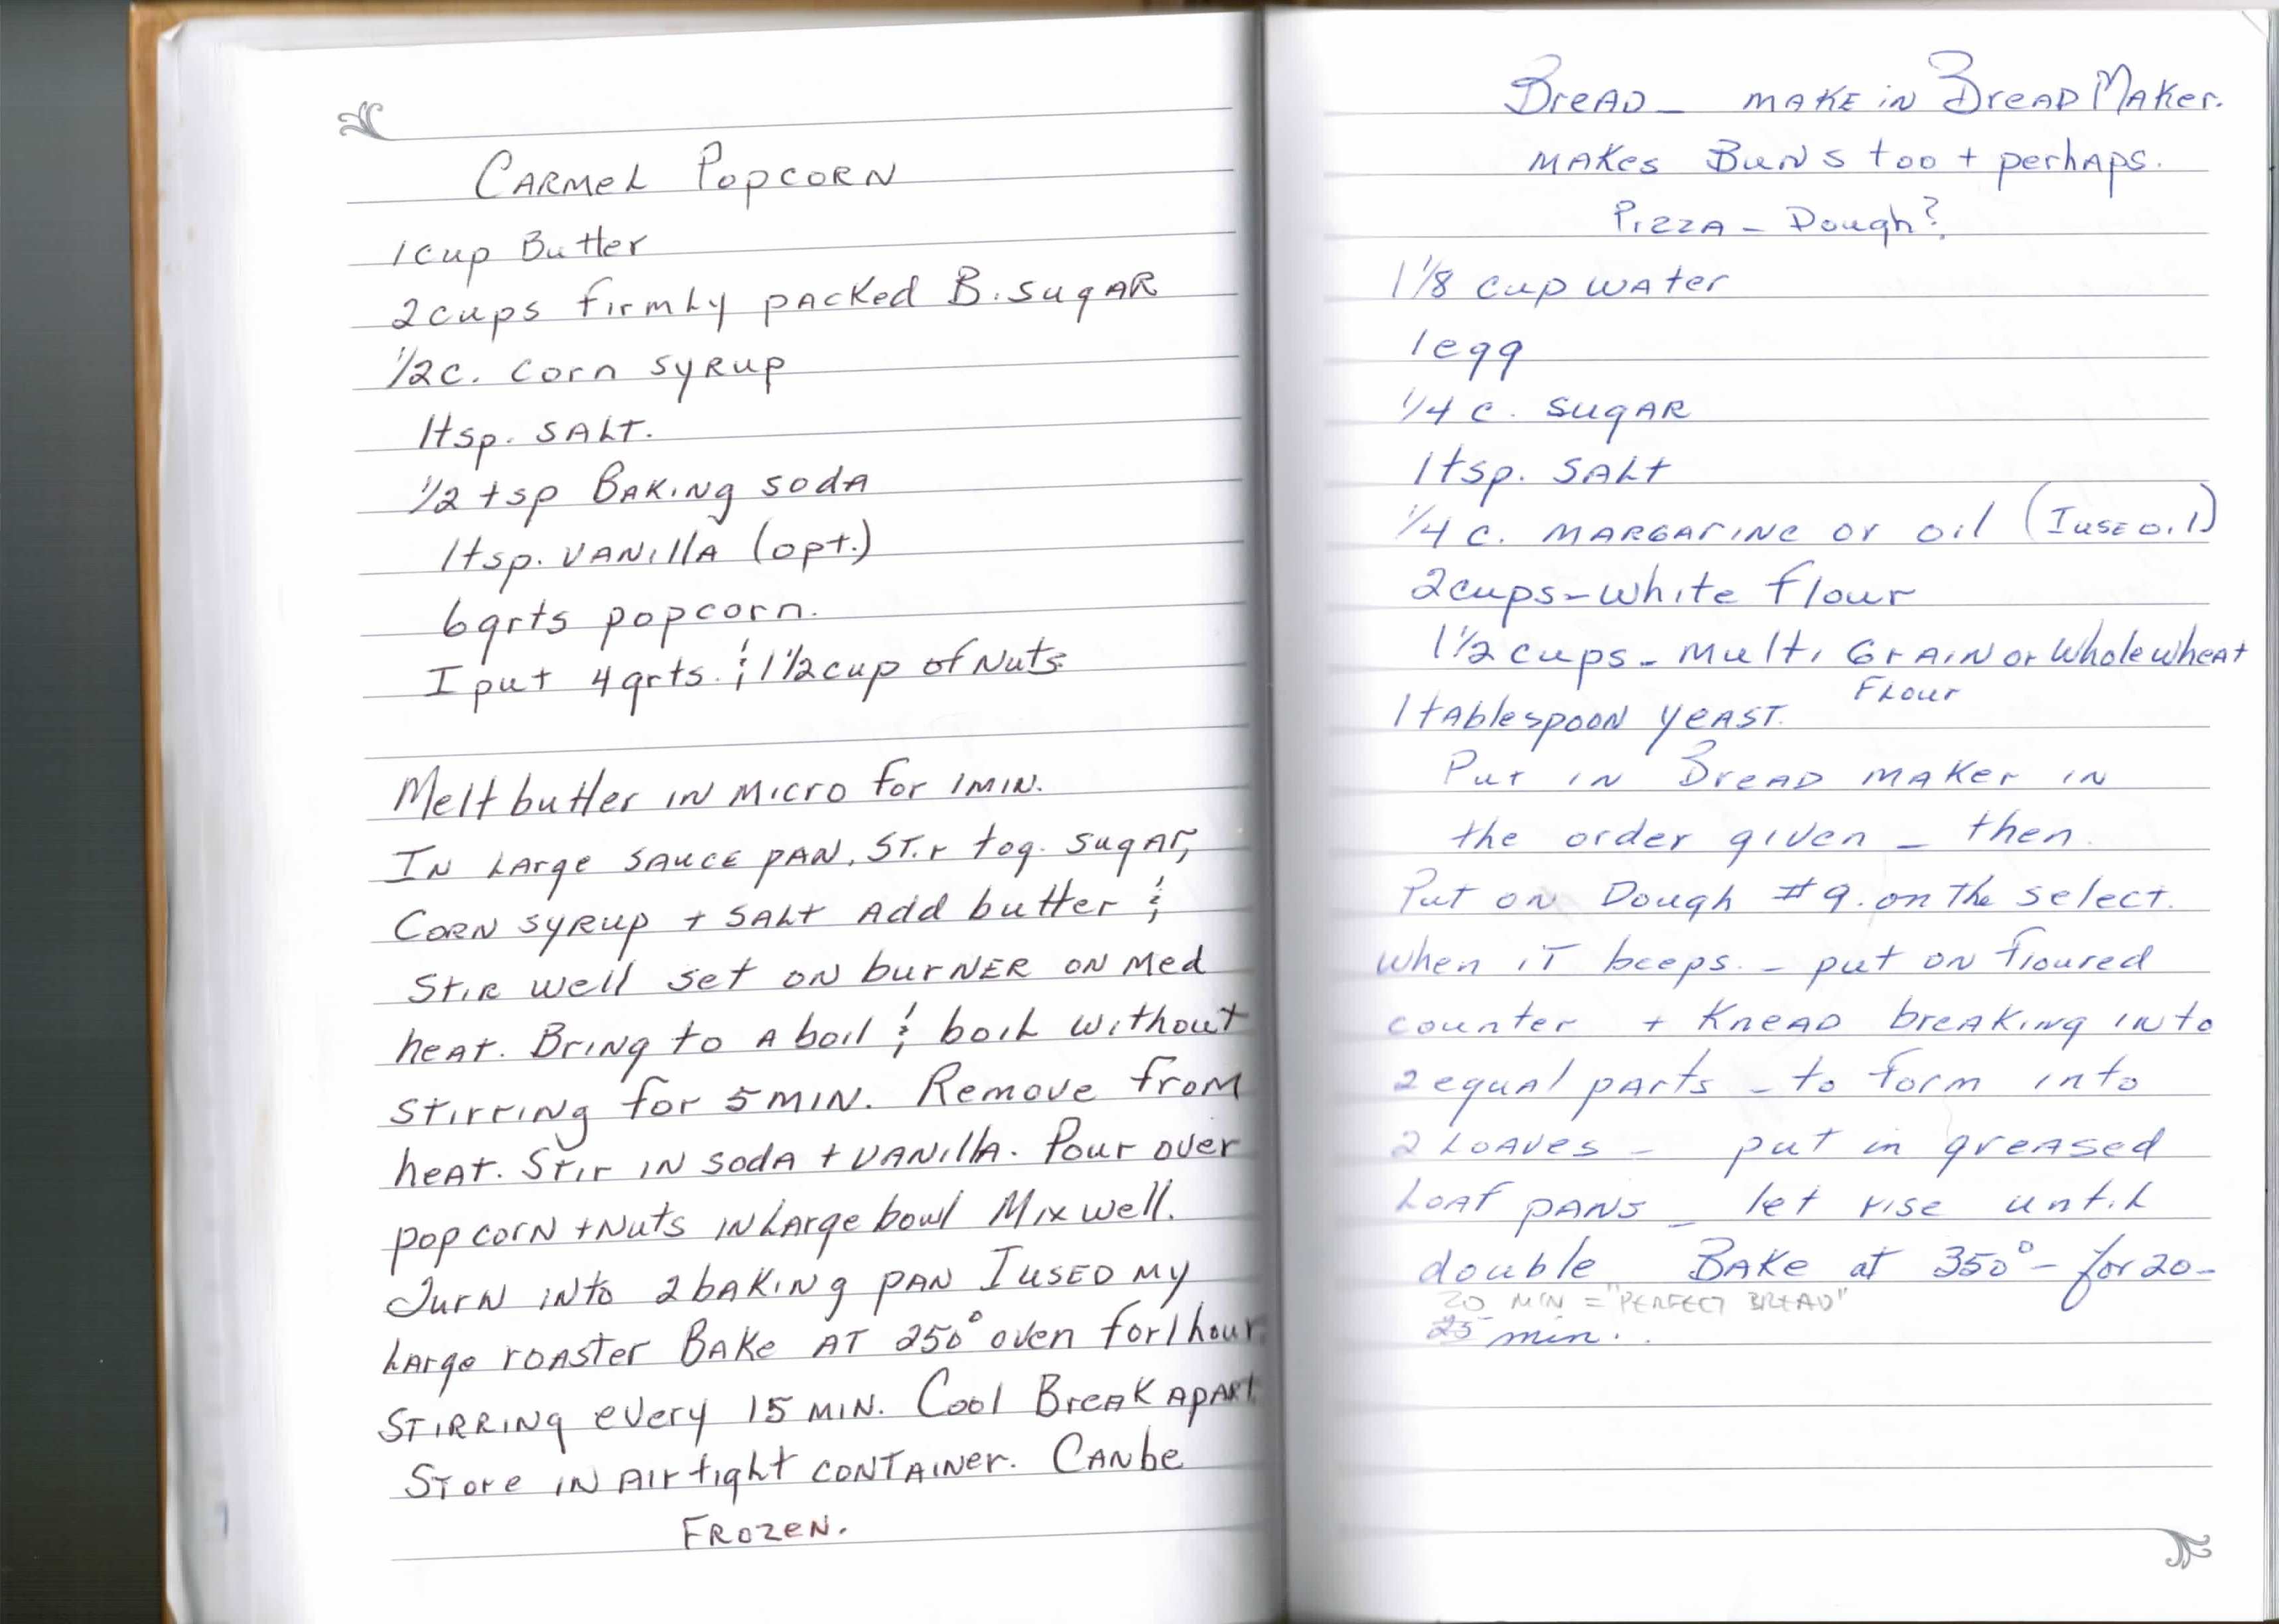 CARMEL POPCORN
1 cup Butter
2 cups firmly packed B. sugar
1/2 c. corn syrup
1 tsp. SALT.
1/2 tsp Baking soda
1 tsp. vanilla (opt.)
6 qrts popcorn.
I put 4 qrts. & 1 1/2 cup of Nuts
Melt butter in micro for 1 min.
In Large sauce pan. Stir tog. sugar,
Corn syrup + salt Add butter &
Stir well set on burner on med
heat. Bring to a boil & boil without
stirring for 5 min. Remove from
heat. Stir in soda + vanilla. Pour over
popcorn + Nuts in Large bowl Mix well.
Turn into 2 baking pan I used my
Large roaster Bake at 250° oven for 1 hour
Stirring every 15 min. Cool Break apart
Store in Air tight container. Can be
Frozen.
Bread - make in Bread Maker.
makes Buns too + perhaps.
Pizza - Dough?
1 1/8 cup water
1 egg
1/4 c. sugar
1 tsp. salt
1/4 c. margarine or oil (I use oil)
2 cups - white flour
1 1/2 cups - Multi Grain or Whole wheat
Flour
1 tablespoon yeast.
Put in Bread maker in
the order given - then
Put on Dough #9. on the select.
when it beeps. - put on floured
counter + Knead breaking into
2 equal parts - to form into
2 Loaves - put in greased
Loaf pans - let rise until
double Bake at 350° - for 20-
20 MIN = "PERFECT BREAD"
25 min..